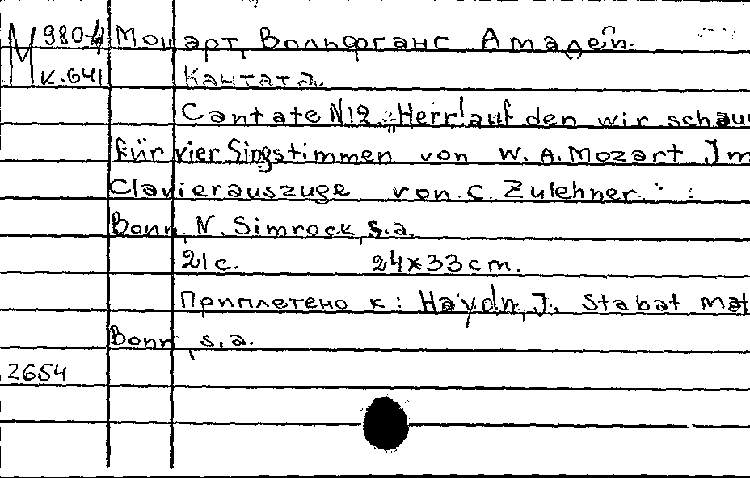 М 980-4 Моцарт, Вольфганг Амадей.
К.641 Кантата.
Cantate N12 „Herr! auf den wir schau
für vier Singstimmen von W. A. Mozart Im
Clavierauszuge von C. Zulehner.
Bonn, N. Simrock, s.a.
21 с. 24×33 cm.
Приплетено к: Haydn, J. Stabat Mat
Bonn, s.a.
2654